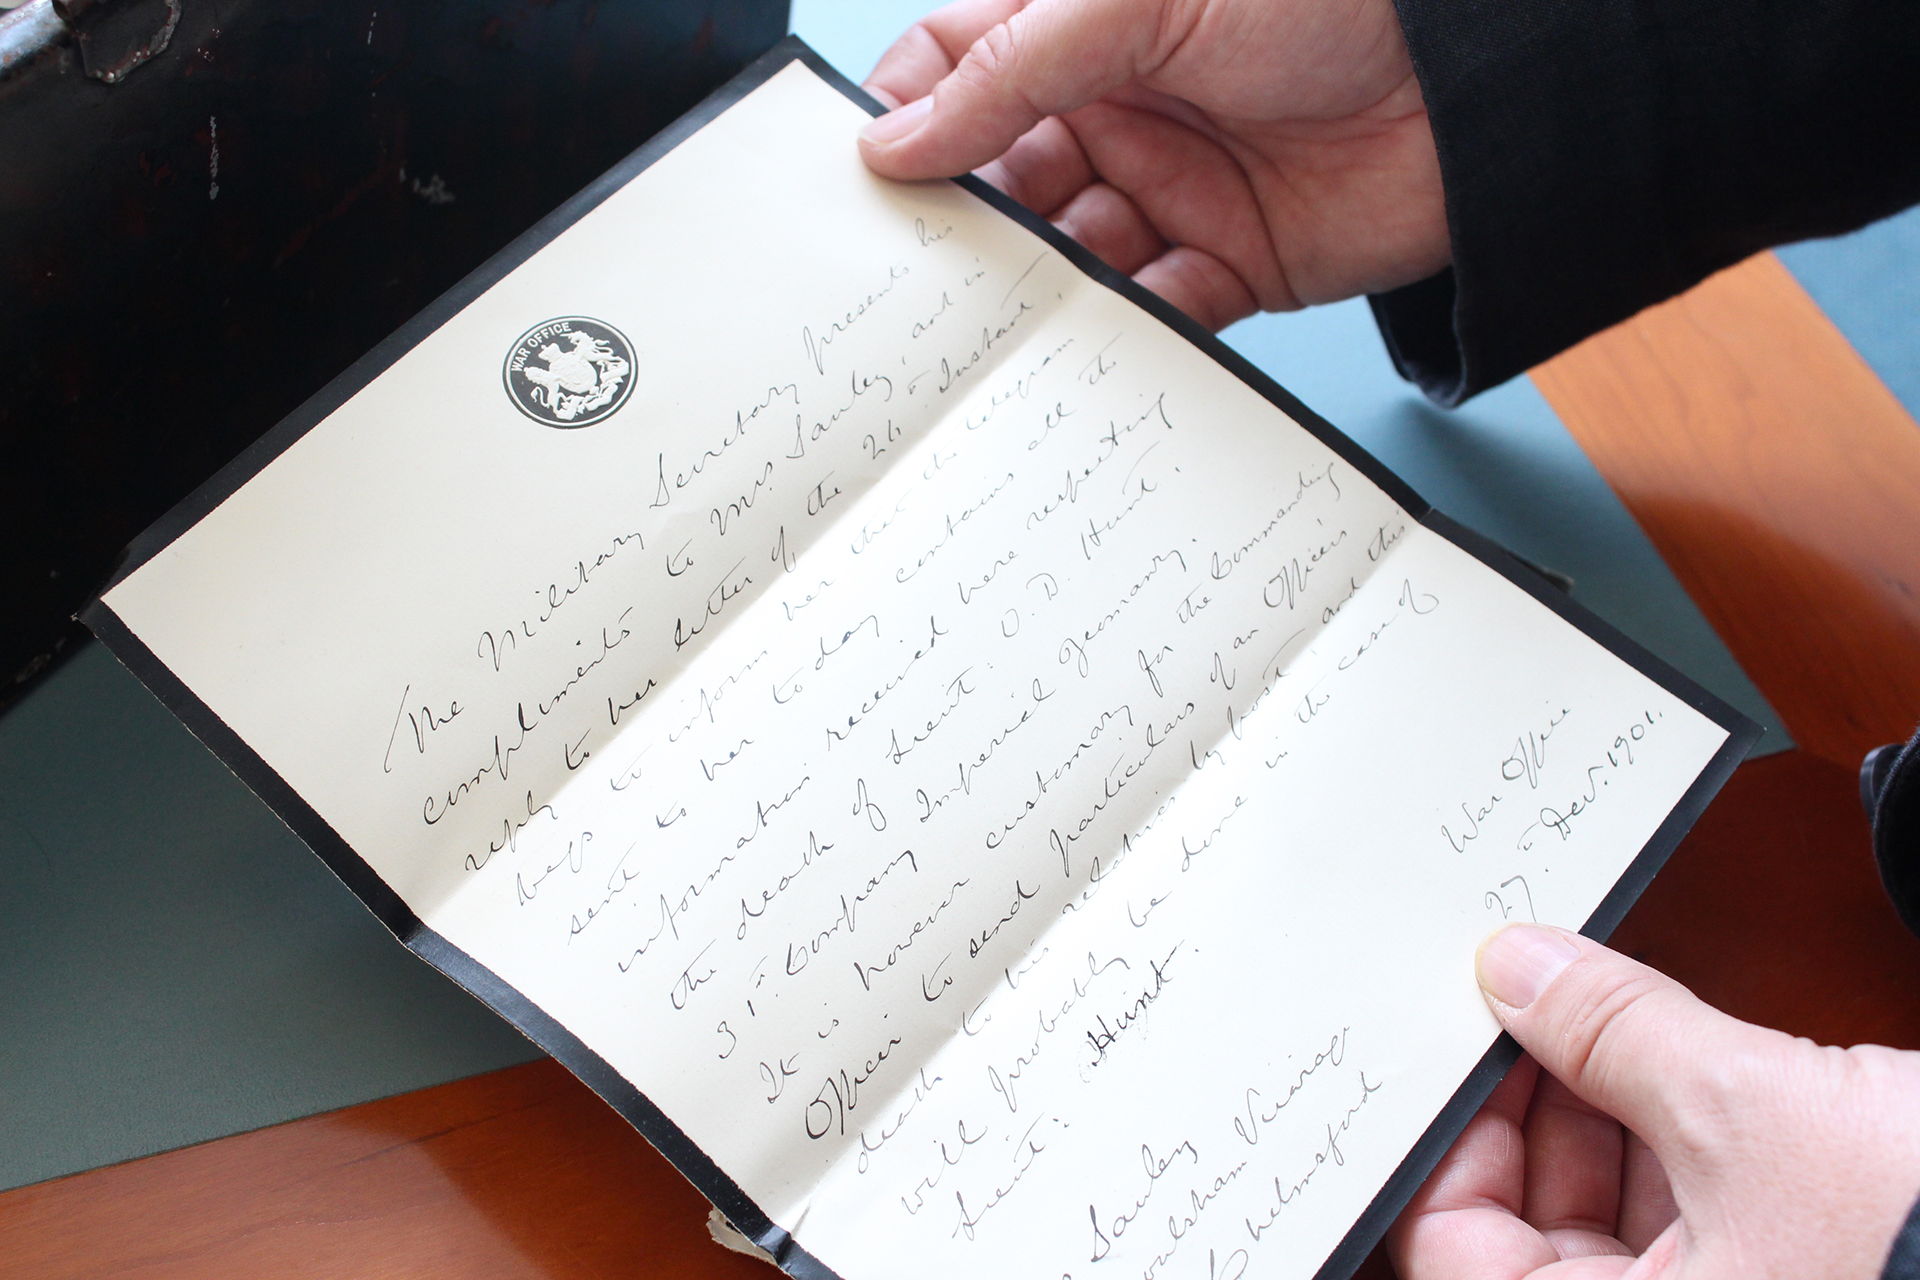 WAR OFFICE
The Military Secretary presents his
compliments to Mrs Sauley, and in
reply to her letter of the 26th. Instant,
begs to inform her that the telegram
sent to her to day contains all the
information received here respecting
the death of Lieut: O. D. Hunt,
31st Company Imperial Yeomanry.
It is however customary for the Commanding
Officer to send particulars of an Officer's
death to his relatives by post and this
will probably be done in the case of
Lieut: Hunt.
War Office
27th Decr. 1901.
Sauley
Vicarage
Chelmsford